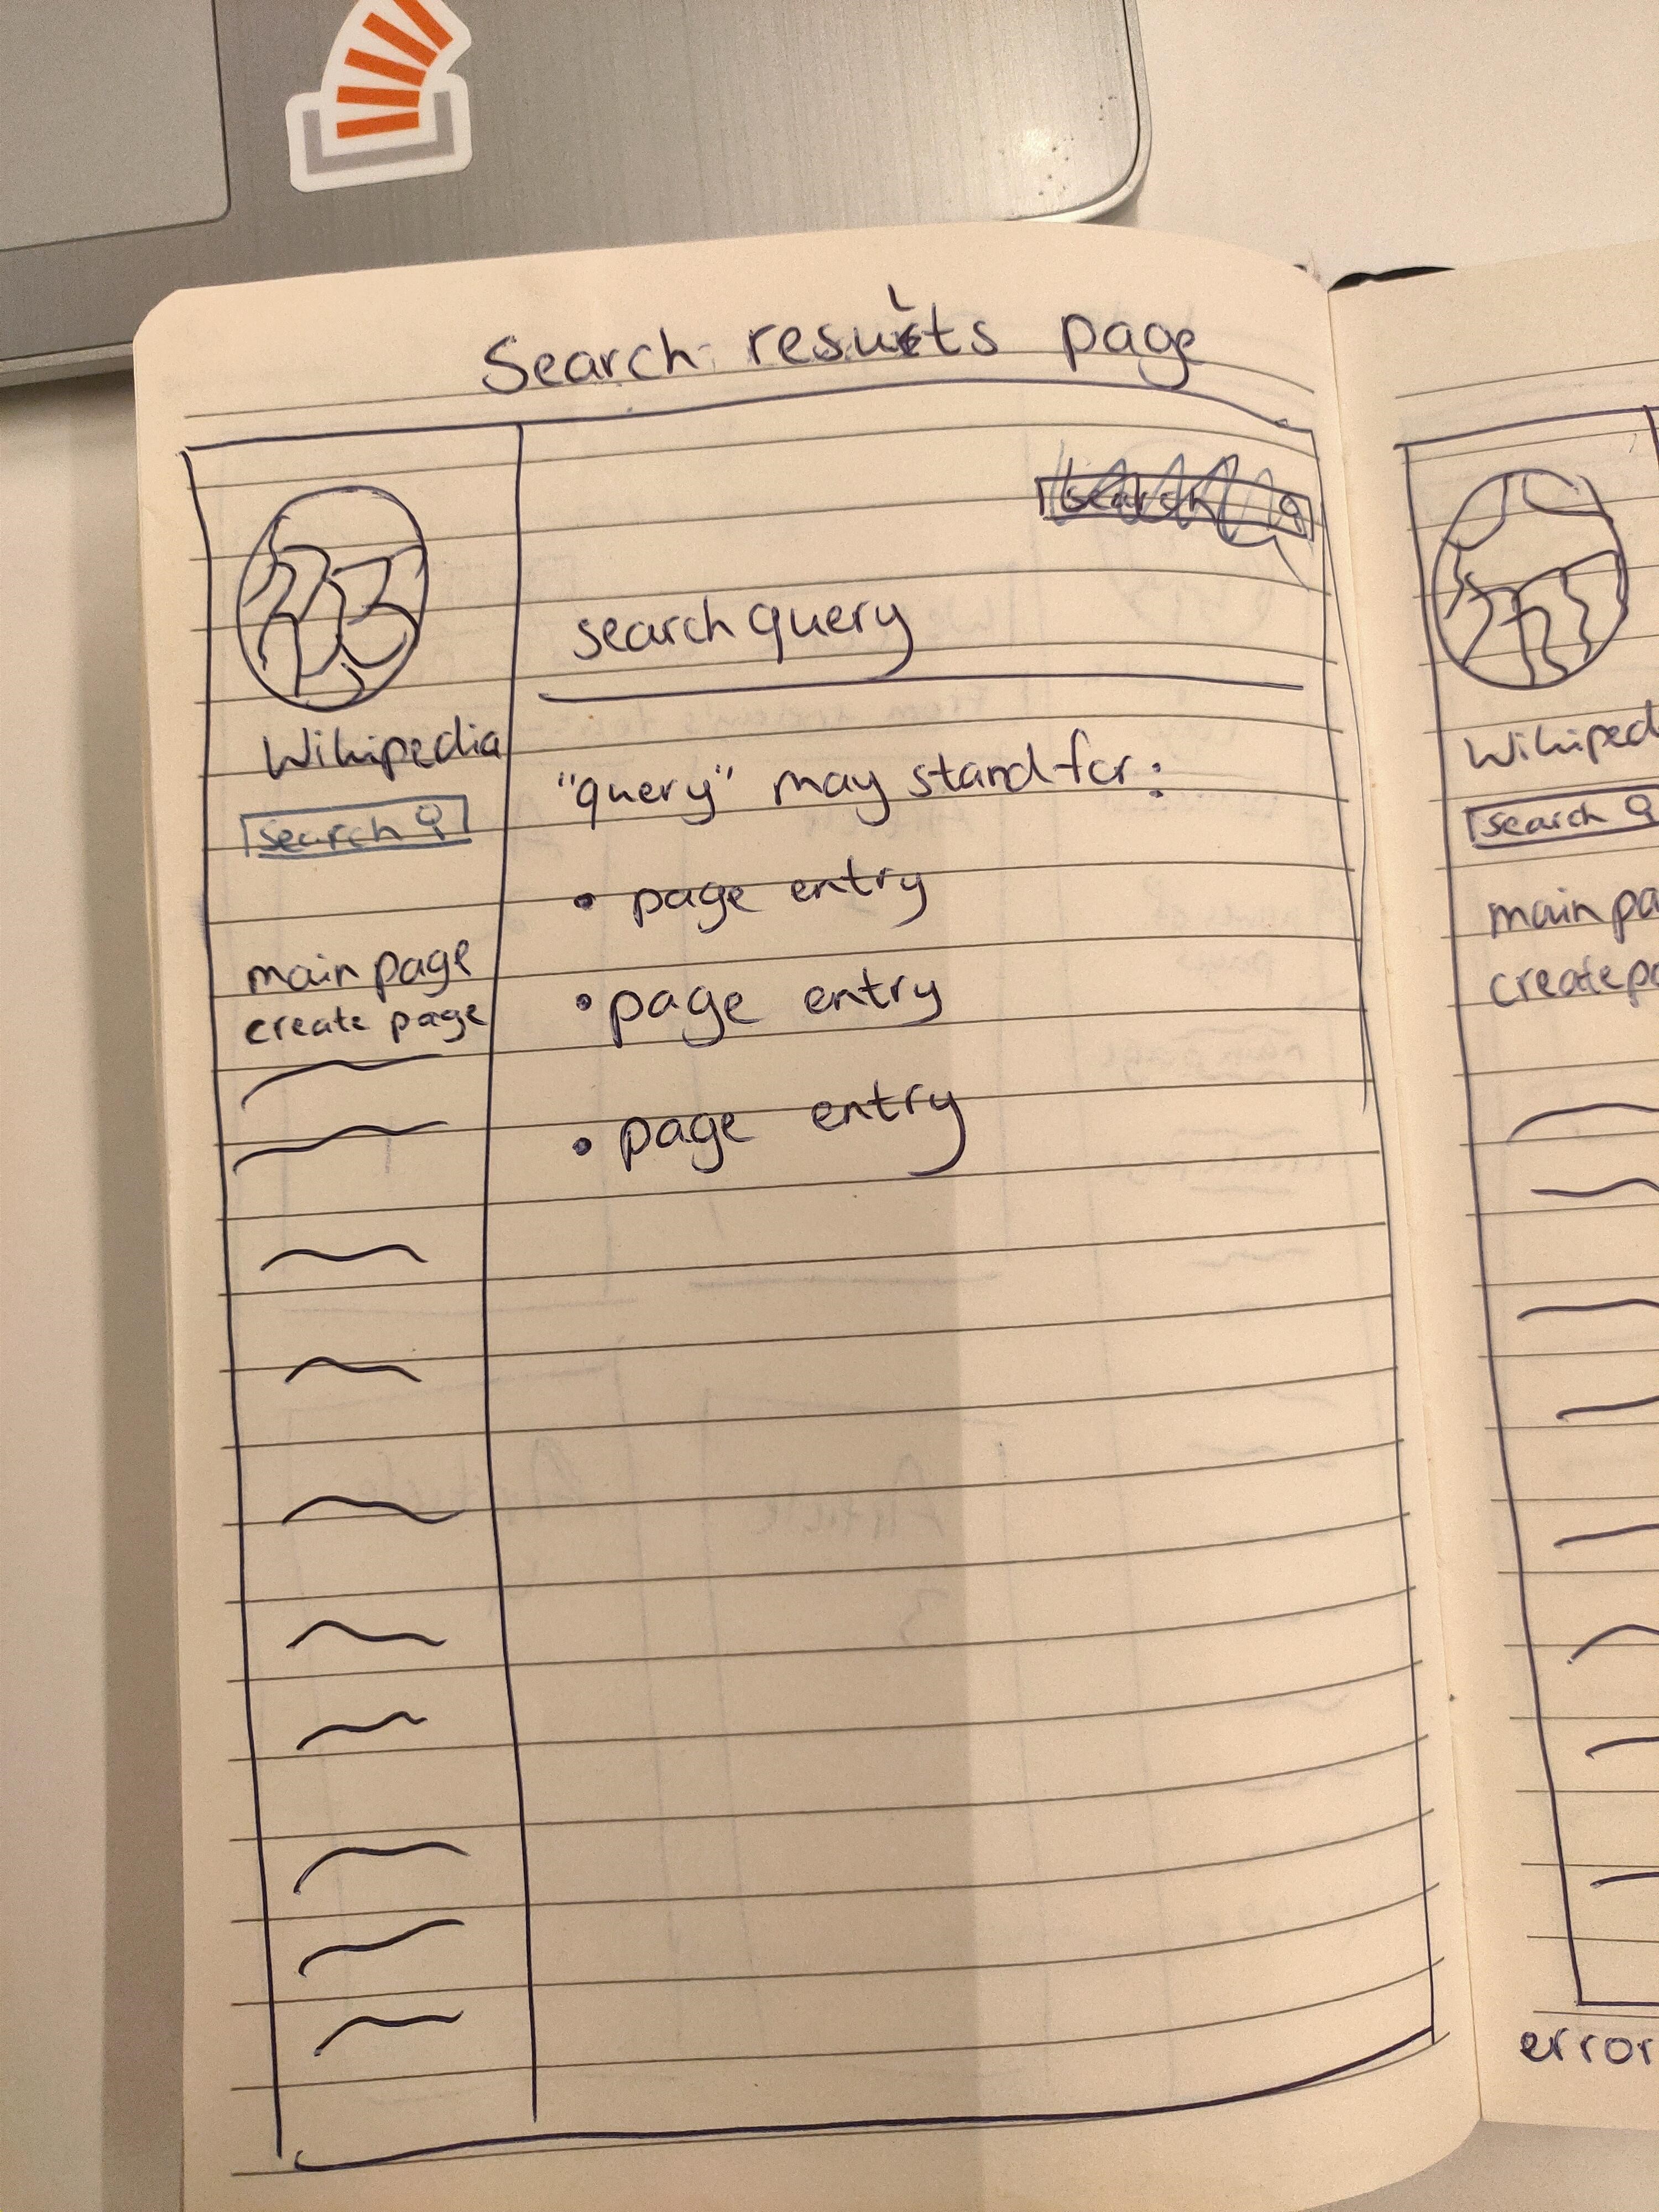 Search results page
search
Wikipedia
search
main page
create page
search query
"query" may stand for:
• page entry
• page entry
• page entry
Wikiped
search
main pa
create pa
error